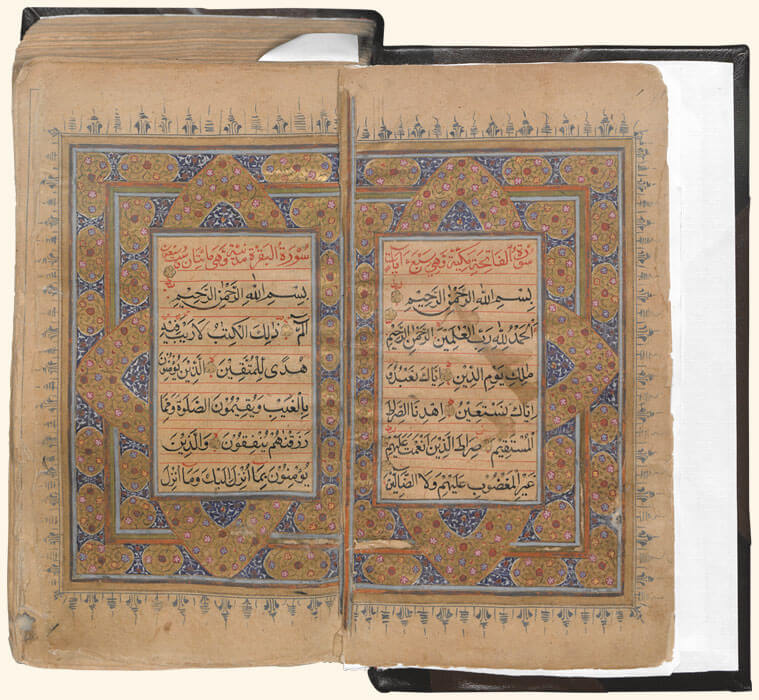 سورة الفاتحة مكية وهي سبع آيات
بِسْمِ اللهِ الرَّحْمٰنِ الرَّحِيْمِ
اَلْحَمْدُ لِلّٰهِ رَبِّ الْعٰلَمِيْنَ الرَّحْمٰنِ الرَّحِيْمِ
مٰلِكِ يَوْمِ الدِّيْنِ اِيَّاكَ نَعْبُدُ وَ
اِيَّاكَ نَسْتَعِيْنُ اِهْدِنَا الصِّرَاطَ
الْمُسْتَقِيْمَ صِرَاطَ الَّذِيْنَ اَنْعَمْتَ عَلَيْهِمْ
غَيْرِ الْمَغْضُوْبِ عَلَيْهِمْ وَلَا الضَّآلِّيْنَ
سورة البقرة مدنية وهي مائتان وست
بِسْمِ اللهِ الرَّحْمٰنِ الرَّحِيْمِ
الٓمّٓ ذٰلِكَ الْكِتٰبُ لَا رَيْبَ فِيْهِ
هُدًى لِلْمُتَّقِيْنَ الَّذِيْنَ يُؤْمِنُوْنَ
بِالْغَيْبِ وَيُقِيْمُوْنَ الصَّلٰوةَ وَمِمَّا
رَزَقْنٰهُمْ يُنْفِقُوْنَ وَالَّذِيْنَ
يُؤْمِنُوْنَ بِمَا اُنْزِلَ اِلَيْكَ وَمَا اُنْزِلَ